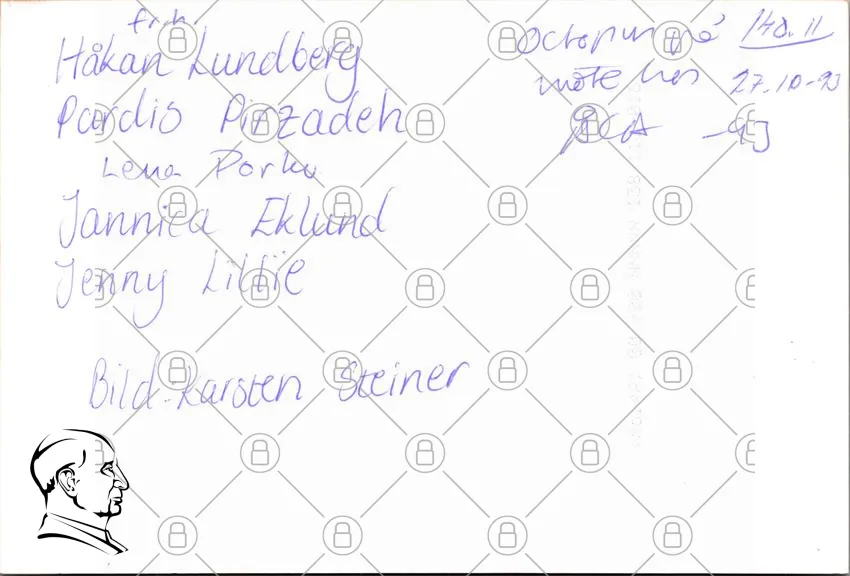 fr.h.
Håkan Lundberg
Pardis Pirzadeh
Lena
Jannica Eklund
Jenny Lillie
Bild: Karsten Steiner
Octopus på
möte hos 27.10-93
-93